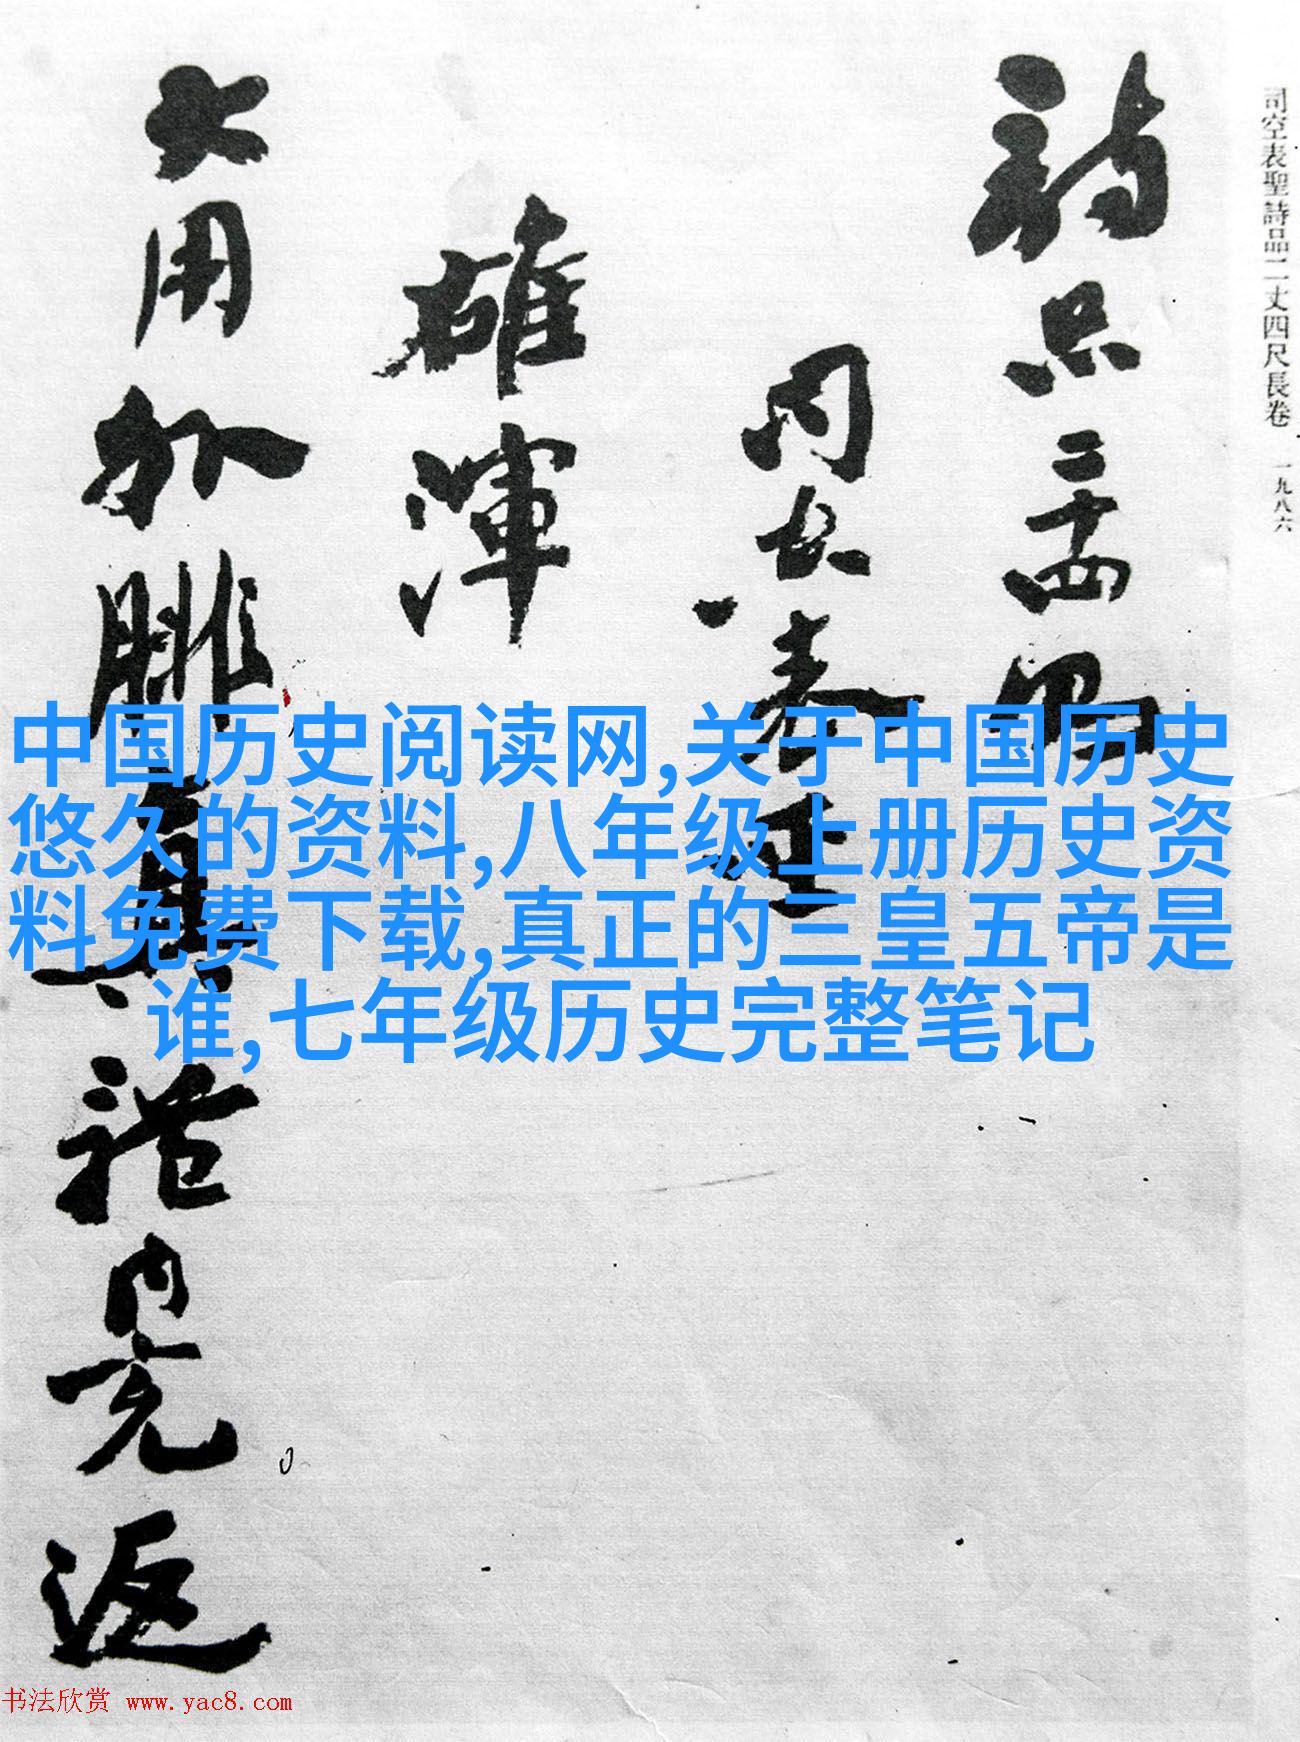 司空表聖詩品二丈四尺長卷 一九八六
詩品二十四則
司空表聖
雄渾
大用外腓真
體内充返
中国历史阅读网,关于中国历史
悠久的资料,八年级上册历史资
料免费下载,真正的三皇五帝是
谁,七年级历史完整笔记
书法欣赏 www.yac8.com